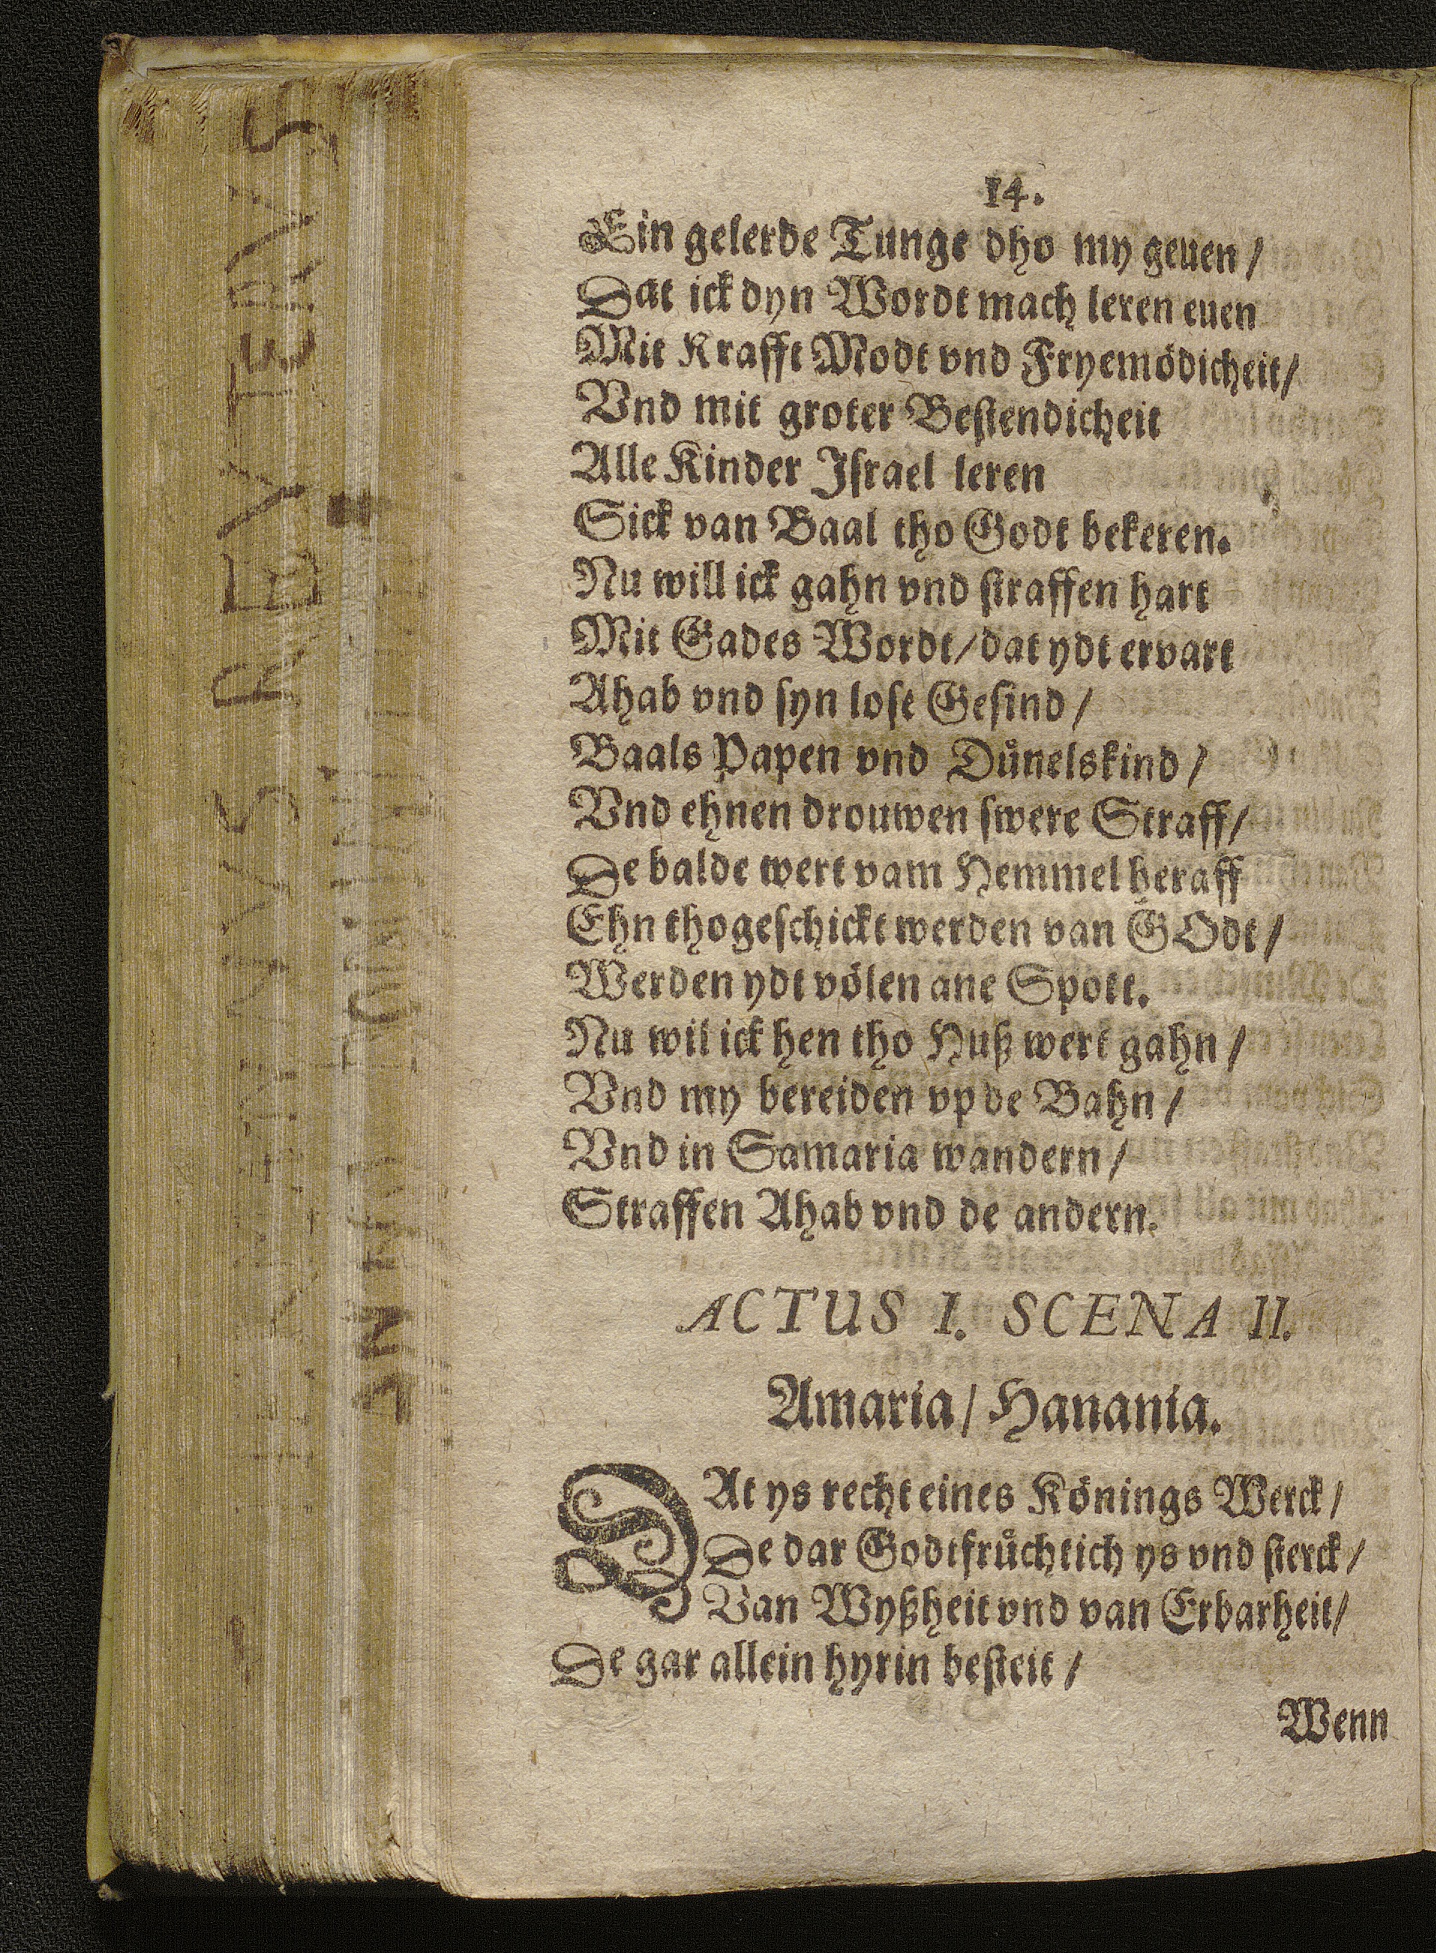 14.
Ein gelerde Tunge dho my geuen /
Dat ick dyn Wordt mach leren euen
Mit Krafft Modt vnd Fryemödicheit /
Vnd mit groter Bestendicheit
Alle Kinder Israel leren
Sick van Baal tho Godt bekeren.
Nu will ick gahn vnd straffen hart
Mit Gades Wordt / dat ydt ervart
Ahab vnd syn lose Gesind /
Baals Papen vnd Duͤuelskind /
Vnd ehnen drouwen swere Straff /
De balde wert vam Hemmel heraff
Ehn thogeschickt werden van GOdt /
Werden ydt völen ane Spott.
Nu wil ick hen tho Huß wert gahn /
Vnd my bereiden vp de Bahn /
Vnd in Samaria wandern /
Straffen Ahab vnd de andern.
ACTUS I. SCENA II.
Amaria / Hanania.
DAt ys recht eines Könings Werck /
De dar Godtfruͤchtich ys vnd sterck /
Van Wyßheit vnd van Erbarheit /
De gar allein hyrin besteit /
Wenn
REVTERVS